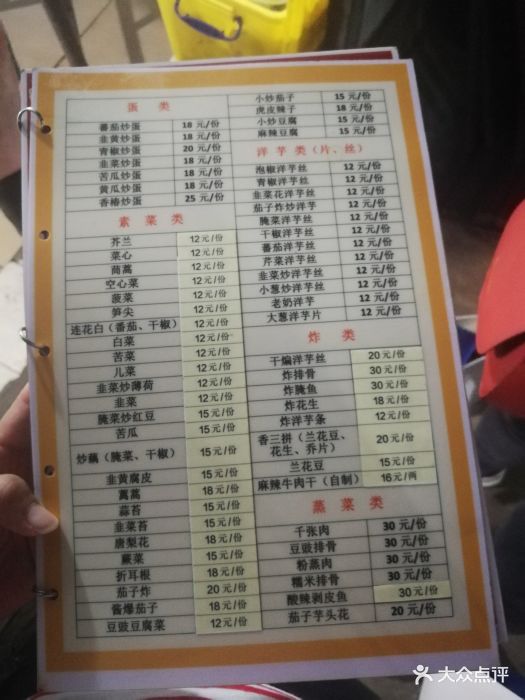 蛋 类
番茄炒蛋 18 元/份
韭黄炒蛋 18 元/份
青椒炒蛋 20 元/份
韭菜炒蛋 18 元/份
苦瓜炒蛋 18 元/份
黄瓜炒蛋 18 元/份
香椿炒蛋 25 元/份
素 菜 类
芥兰 12元/份
菜心 12元/份
茼蒿 12元/份
空心菜 12元/份
菠菜 12元/份
笋尖 12元/份
连花白（番茄、干椒） 12元/份
白菜 12元/份
苦菜 12元/份
儿菜 12元/份
韭菜炒薄荷 12元/份
韭菜 12元/份
腌菜炒红豆 15元/份
苦瓜 15元/份
炒藕（腌菜、干椒） 15元/份
韭黄腐皮 15元/份
蒿蒿 18元/份
蒜苔 15元/份
韭菜苔 15元/份
唐梨花 18元/份
蕨菜 15元/份
折耳根 18元/份
茄子炸 20元/份
酱爆茄子 18元/份
豆豉豆腐菜 12元/份
小炒茄子 15 元/份
虎皮辣子 18 元/份
小炒豆腐 15 元/份
麻辣豆腐 15 元/份
洋 芋 类（片、丝）
泡椒洋芋丝 12 元/份
青椒洋芋丝 12 元/份
韭菜花洋芋丝 12 元/份
茄子炸炒洋芋 12 元/份
腌菜洋芋丝 12 元/份
干椒洋芋丝 12 元/份
番茄洋芋丝 12 元/份
芹菜洋芋丝 12 元/份
韭菜炒洋芋丝 12 元/份
小葱炒洋芋丝 12 元/份
老奶洋芋 12 元/份
大葱洋芋片 12 元/份
炸 类
干煸洋芋丝 20元/份
炸排骨 30元/份
炸腌鱼 30元/份
炸花生 18元/份
炸洋芋条 12元/份
香三拼（兰花豆、
花生、乔片） 20元/份
兰花豆 15元/份
麻辣牛肉干（自制） 16元/两
蒸 菜 类
千张肉 30 元/份
豆豉排骨 30 元/份
粉蒸肉 30 元/份
糯米排骨 30 元/份
酸辣剥皮鱼 30元/份
茄子芋头花 20 元/份
大众点评